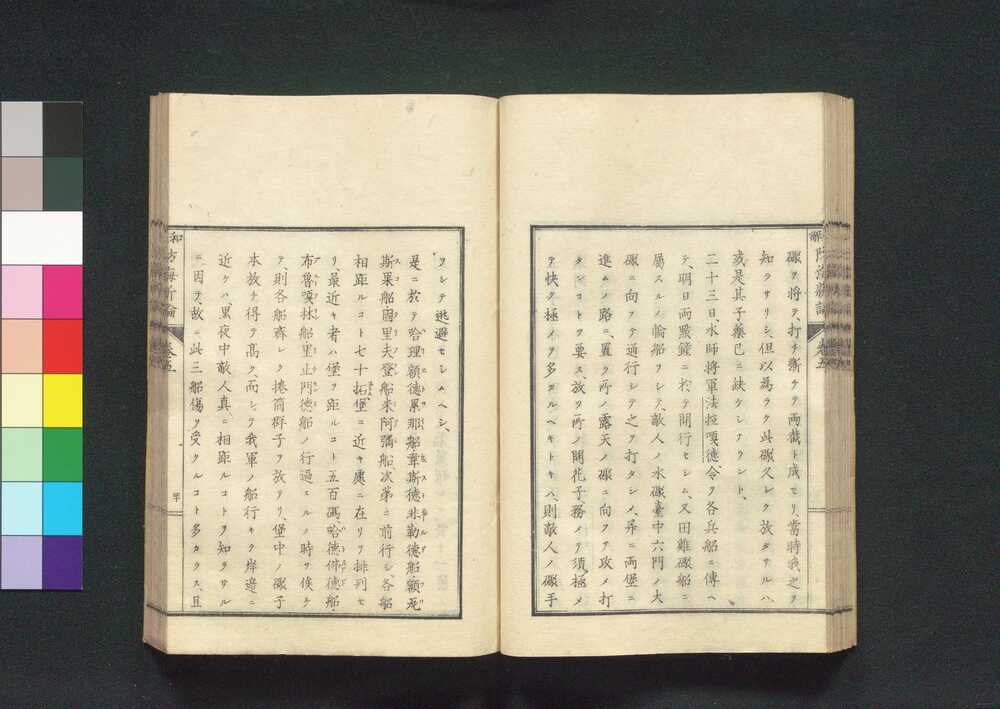 礮ヲ將テ、打チ斷チテ両截ト成セリ當時我之ヲ
知ラサリシ、但以為ラク此礮久シク放タサルハ、
或是其子藥已ニ缺ケシナラント、
二十三日、水師將軍法拉嘎德令ヲ各兵船ニ傳ヘ
テ、明日両點鐘ニ於テ開行セシム、又田雞礮船ニ
屬スルノ輪船ヲシテ、敵人ノ水礮臺中六門ノ大
礮ニ向フテ通行シテ之ヲ打タシメ、尋ニ両堡ニ
進ムノ路ニ、置ク所ノ露天ノ礮ニ向ヲ攻メ打
タンコトヲ要ス、放ツ所ノ開花子、務メテ須極メ
テ快ク極メテ多カルヘキトキハ、則敵人ノ礮手
ヲシテ逃避セシムヘシ、
是ニ於テ哈理額德累那船韋斯德米勒德船額死
斯果船、固里夫登船米阿彌船、次第ニ前行シ、各船
相距ルコト七十拓堡ニ近キ處ニ在リヲ排列セ
リ、最近キ者ハ堡ヲ距ルコト五百碼、哈德佛德船
布魯嘎林船里止門德船ノ行過スルノ時ヲ俟チ
テ、則各船齊シク捲筒群子ヲ放ツリ、堡中ノ礮子
本放チ得テ高ク、而シテ我軍ノ船行キテ岸邉ニ
近ケハ、黒夜中敵人真ニ相距ルコトヲ知ラサル
ニ因テ、故ニ此三船傷ヲ受クルコト多カラス、且
和
防海新論
卷五
解
防海新論
卷五